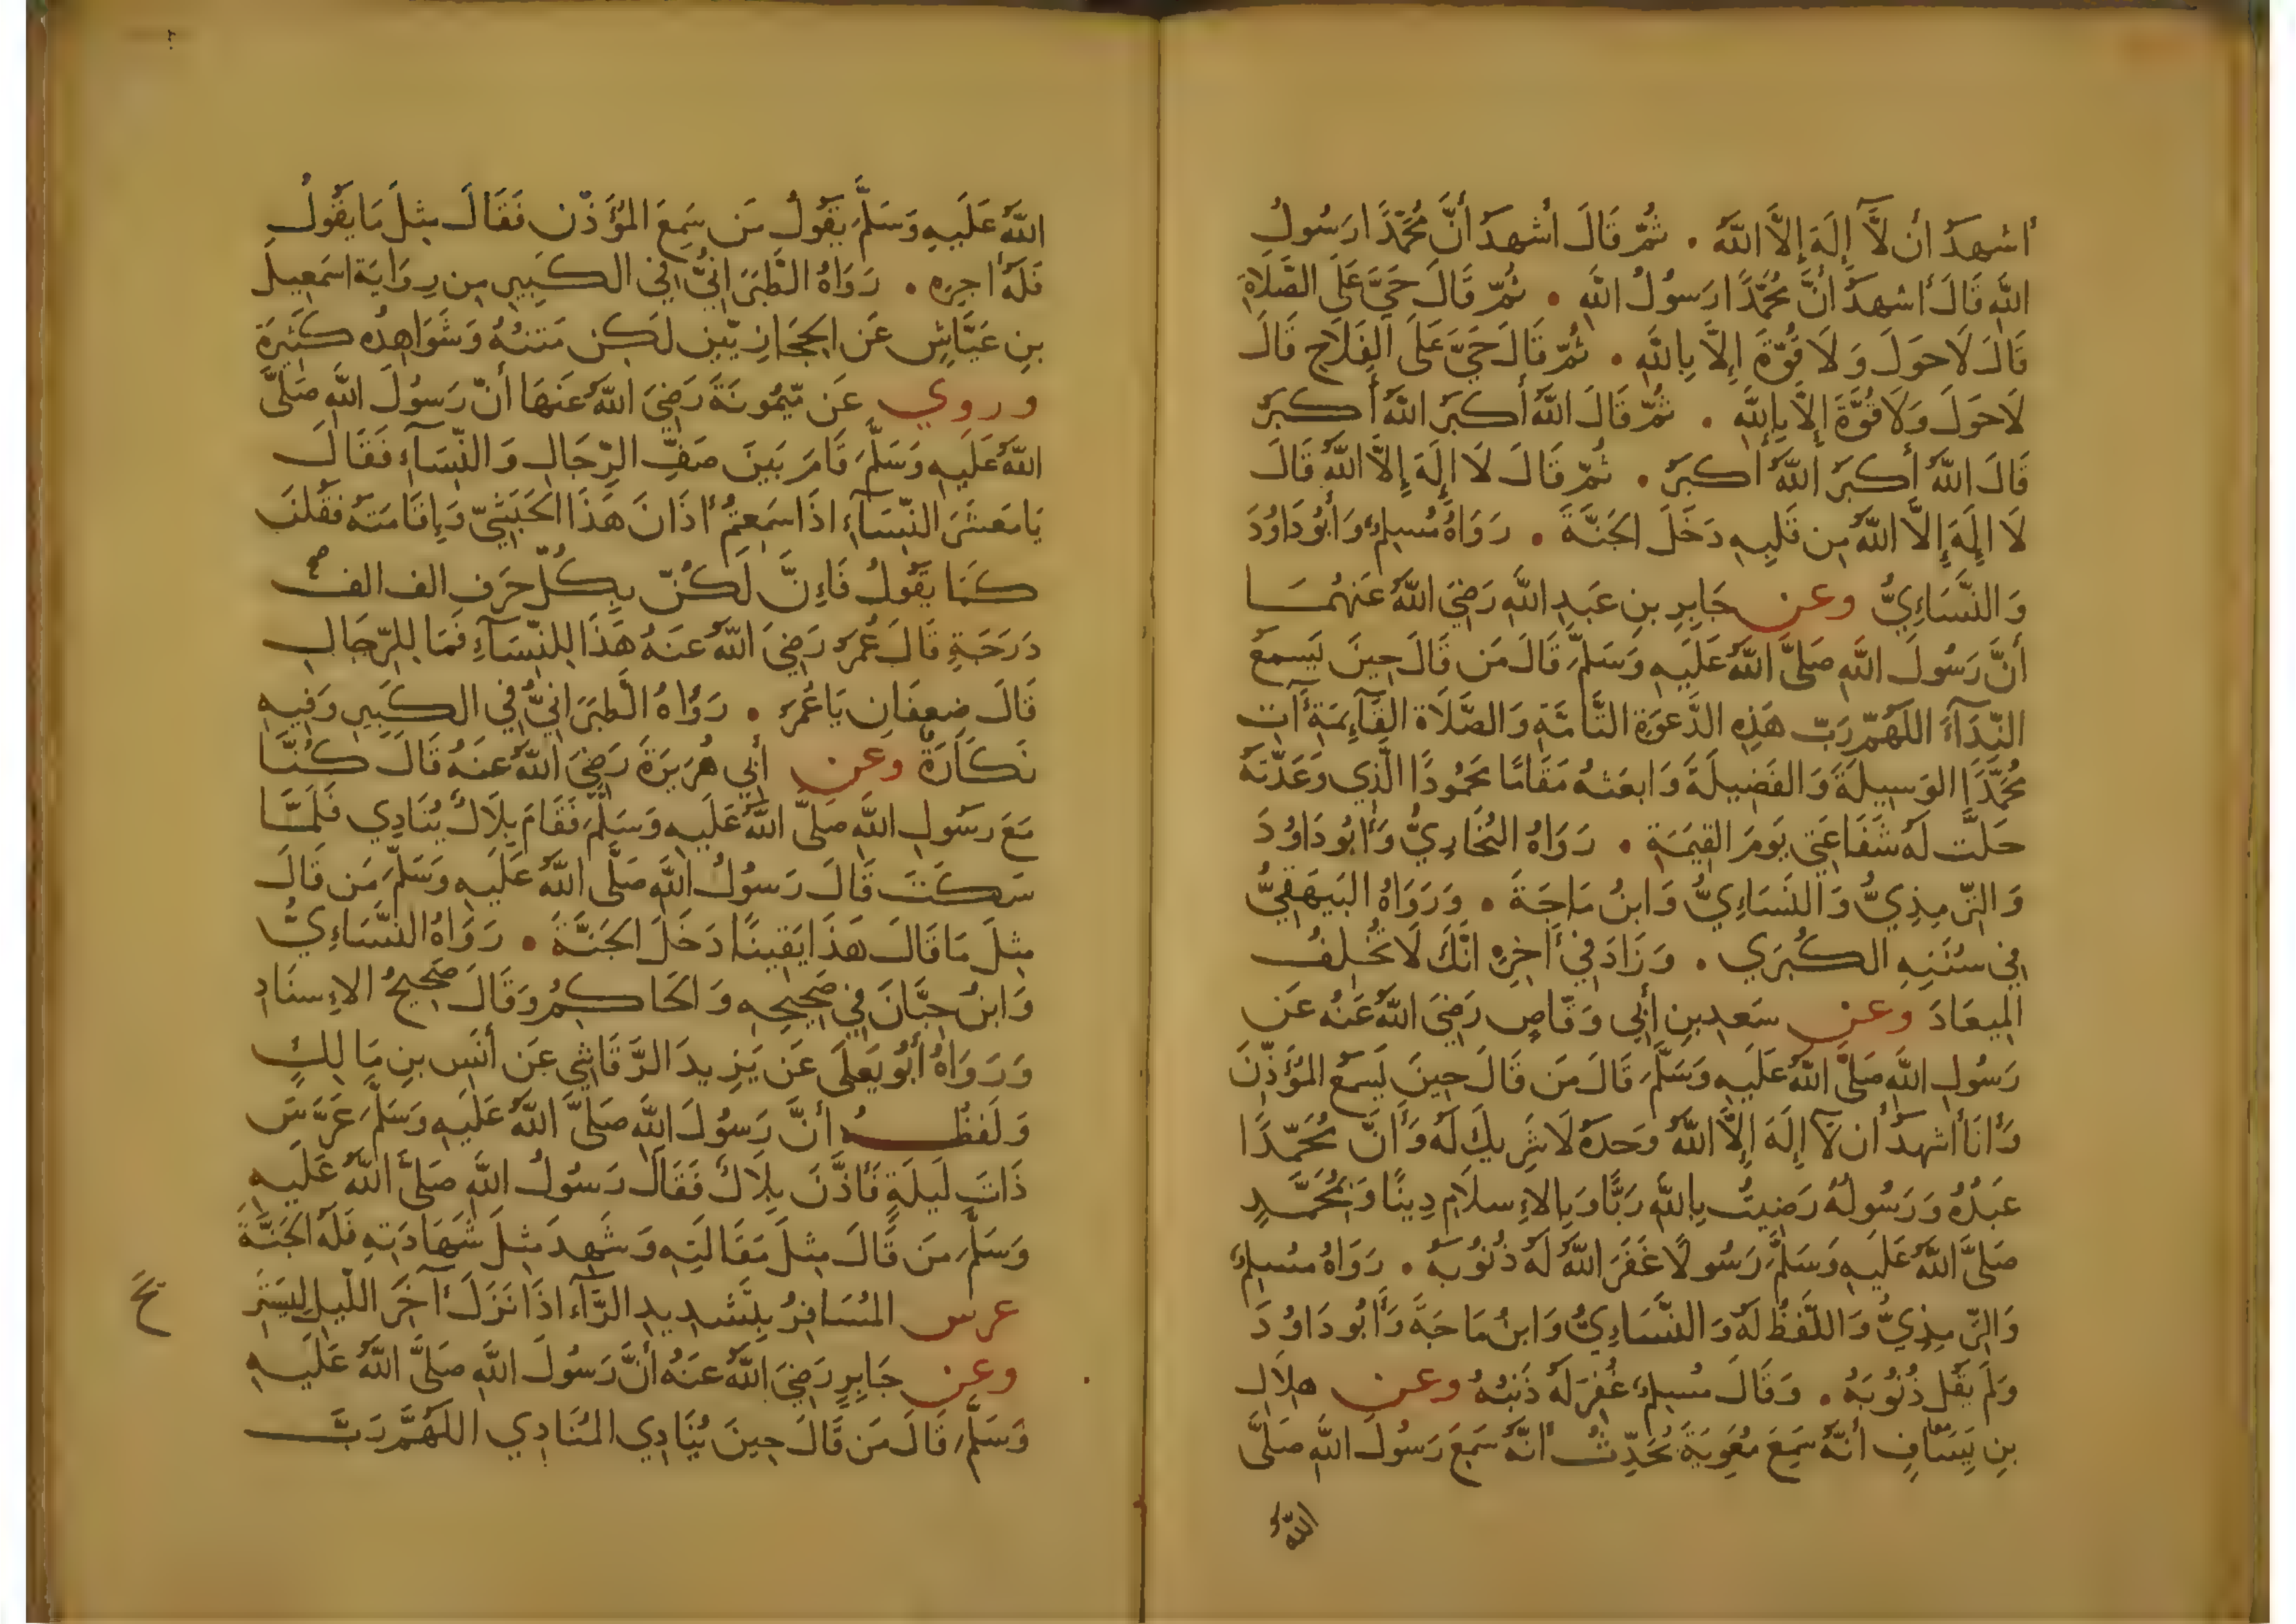 أَشهَدُ أَن لَّآ إِلَهَ إِلَّا اللَّهُ . ثُمَّ قَالَ أَشهَدُ أَنَّ مُحَمَّدًا رَسُولُ
اللَّهِ قَالَ أَشهَدُ أَنَّ مُحَمَّدًا رَسُولُ اللَّهِ . ثُمَّ قَالَ حَيَّ عَلَى الصَّلَاةِ
قَالَ لَا حَولَ وَلَا قُوَّةَ إِلَّا بِاللَّهِ . ثُمَّ قَالَ حَيَّ عَلَى الفَلَاحِ قَالَ
لَا حَولَ وَلَا قُوَّةَ إِلَّا بِاللَّهِ . ثُمَّ قَالَ اللَّهُ أَكبَرُ اللَّهُ أَكبَرُ
قَالَ اللَّهُ أَكبَرُ اللَّهُ أَكبَرُ . ثُمَّ قَالَ لَا إِلَهَ إِلَّا اللَّهُ قَالَ
لَا إِلَهَ إِلَّا اللَّهُ مِن قَلبِهِ دَخَلَ الجَنَّةَ . رَوَاهُ مُسلِمٌ وَأَبُو دَاوُدَ
وَالنَّسَاءِيُّ وعن جَابِرِ بنِ عَبدِ اللَّهِ رَضِيَ اللَّهُ عَنهُمَا
أَنَّ رَسُولَ اللَّهِ صَلَّى اللَّهُ عَلَيهِ وَسَلَّمَ قَالَ مَن قَالَ حِينَ يَسمَعُ
النِّدَآءَ اللَّهُمَّ رَبَّ هَذِهِ الدَّعوَةِ التَّامَّةِ وَالصَّلَاةِ القَآئِمَةِ آتِ
مُحَمَّدًا الوَسِيلَةَ وَالفَضِيلَةَ وَابعَثهُ مَقَامًا مَحمُودًا الَّذِي وَعَدتَّهُ
حَلَّت لَهُ شَفَاعَتِي يَومَ القِيَمَةِ . رَوَاهُ البُخَارِيُّ وَأَبُو دَاوُدَ
وَالتِّرمِذِيُّ وَالنَّسَاءِيُّ وَابنُ مَاجَةَ . وَرَوَاهُ البَيهَقِيُّ
فِي سُنَنِهِ الكُبرَي . وَزَادَ فِي آخِرِهِ انَّكَ لَا تُخلِفُ
المِيعَادَ وعن سَعدِ بنِ أَبِي وَقَّاصٍ رَضِيَ اللَّهُ عَنهُ عَن
رَسُولِ اللَّهِ صَلَّى اللَّهُ عَلَيهِ وَسَلَّمَ قَالَ مَن قَالَ حِينَ يَسمَعُ المُؤَذِّنَ
وَأَنَا أَشهَدُ أَن لَآ إِلَهَ إِلَّا اللَّهُ وَحدَهُ لَا شَرِيكَ لَهُ وَأَنَّ مُحَمَّدًا
عَبدُهُ وَرَسُولُهُ رَضِيتُ بِاللَّهِ رَبًّا وَبِالإِسلَامِ دِينًا وَبِمُحَمَّدٍ
صَلَّى اللَّهُ عَلَيهِ وَسَلَّمَ رَسُولًا غَفَرَ اللَّهُ لَهُ ذُنُوبَهُ . رَوَاهُ مُسلِمٌ
وَالتِّرمِذِيُّ وَاللَّفظُ لَهُ وَالنَّسَاءِيُّ وَابنُ مَاجَةَ وَأَبُو دَاوُدَ
وَلَم يَقُل ذُنُوبَهُ . وَقَالَ مُسلِمٌ غُفِرَ لَهُ ذَنبُهُ وعن هِلَالِ
بنِ يَسَافٍ أَنَّهُ سَمِعَ مُعَوِيَةَ يُحَدِّثُ أَنَّهُ سَمِعَ رَسُولَ اللَّهِ صَلَّى
اللَّهُ
اللَّهُ عَلَيهِ وَسَلَّمَ يَقُولُ مَن سَمِعَ المُؤَذِّن فَقَالَ مِثلَ مَا يَقُولُ
فَلَهُ أَجرِهِ . رَوَاهُ الطَّبَرَانِيُّ فِي الكَبِيرِ مِن رِوَايَةِ اسمَعِيلَ
بنِ عَيَّاشٍ عَنِ الحِجَازِيِّينَ لَكِن مَتنُهُ وَشَوَاهِدُه كَثِيرَة
وروي عَن مَيمُونَةَ رَضِيَ اللَّهُ عَنهَا أَنَّ رَسُولَ اللَّهِ صَلَّى
اللَّهُ عَلَيهِ وَسَلَّمَ قَامَ بَينَ صَفِّ الرِّجَالِ وَالنِّسَآءِ فَقَالَ
يَا مَعشَرَ النِّسَآءِ اذَا سَمِعتُم أَذَانَ هَذَا الحَبَشِيِّ وَإِقَامَتَهُ فَقُلنَ
كَمَا يَقُولُ فَإِنَّ لَكُنَّ بِكُلِّ حَرَفٍ الف الف
دَرَجَةٍ قَالَ عُمَرُ رَضِيَ اللَّهُ عَنهُ هَذَا لِلنِّسَآءِ فَمَا لِلرِّجَالِ
قَالَ ضِعفَانِ يَا عُمَرُ . رَوَاهُ الطَّبَرَانِيُّ فِي الكَبِيرِ وَفِيهِ
نَكَارَةٌ وعن أَبِي هُرَيرَةَ رَضِيَ اللَّهُ عَنهُ قَالَ كُنَّا
مَعَ رَسُولِ اللَّهِ صَلَّى اللَّهُ عَلَيهِ وَسَلَّمَ فَقَامَ بِلَالٌ يُنَادِي فَلَمَّا
سَكَتَ قَالَ رَسُولُ اللَّهِ صَلَّى اللَّهُ عَلَيهِ وَسَلَّمَ مَن قَالَ
مِثلَ مَا قَالَ هَذَا يَقِينًا دَخَلَ الجَنَّةَ . رَوَاهُ النَّسَاءِيُّ
وَابنُ حِبَّانَ فِي صَحِيحِهِ وَالحَاكِمُ وَقَالَ صَحِيحُ الإِسنَادِ
وَرَوَاهُ أَبُو يَعلَى عَن يَزِيدَ الرَّقَاشِي عَن أَنَسِ بنِ مَالِكٍ
وَلَفظُهُ أَنَّ رَسُولَ اللَّهِ صَلَّى اللَّهُ عَلَيهِ وَسَلَّمَ عَرَّسَ
ذَاتَ لَيلَةٍ فَأَذَّنَ بِلَالٌ فَقَالَ رَسُولُ اللَّهِ صَلَّى اللَّهُ عَلَيهِ
وَسَلَّمَ مَن قَالَ مِثلَ مَقَالَتِهِ وَشَهِدَ مِثلَ شَهَادَتِهِ فَلَهُ الجَنَّةَ
عرس المُسَافِرُ بِتَشدِيدِ الرَّآءِ اذَا نَزَلَ آخَرَ اللَّيلِ
وعن جَابِرٍ رَضِيَ اللَّهُ عَنهُ أَنَّ رَسُولَ اللَّهِ صَلَّى اللَّهُ عَلَيهِ
وَسَلَّمَ قَالَ مَن قَالَ حِينَ يُنَادِي المُنَادِي اللَّهُمَّ رَبَّ